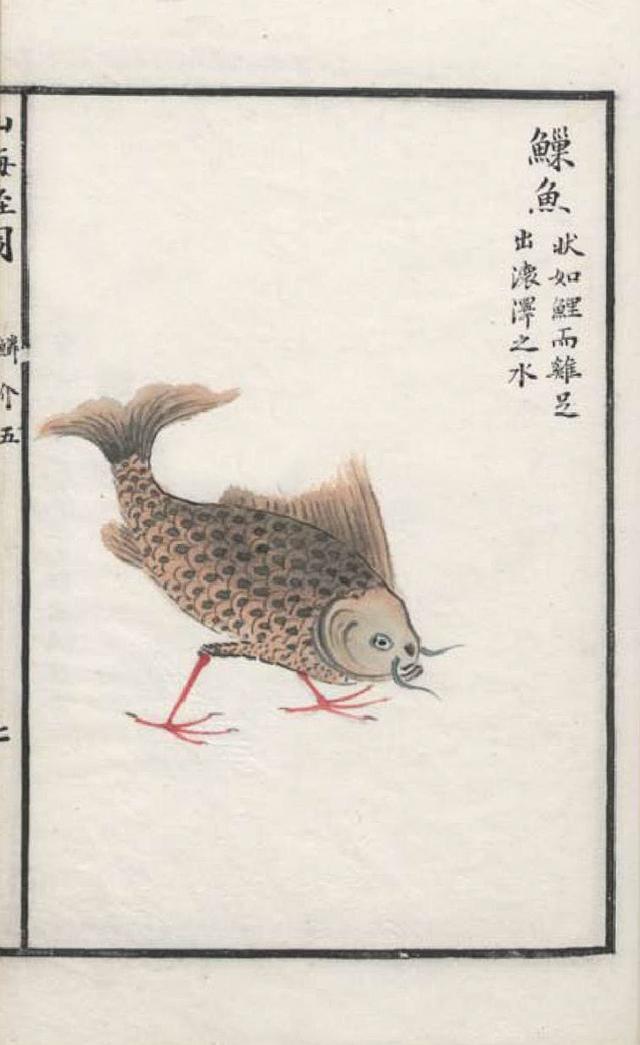 䲃魚
狀如鯉而雞足
出瀤澤之水
山海經圖
鱗介五